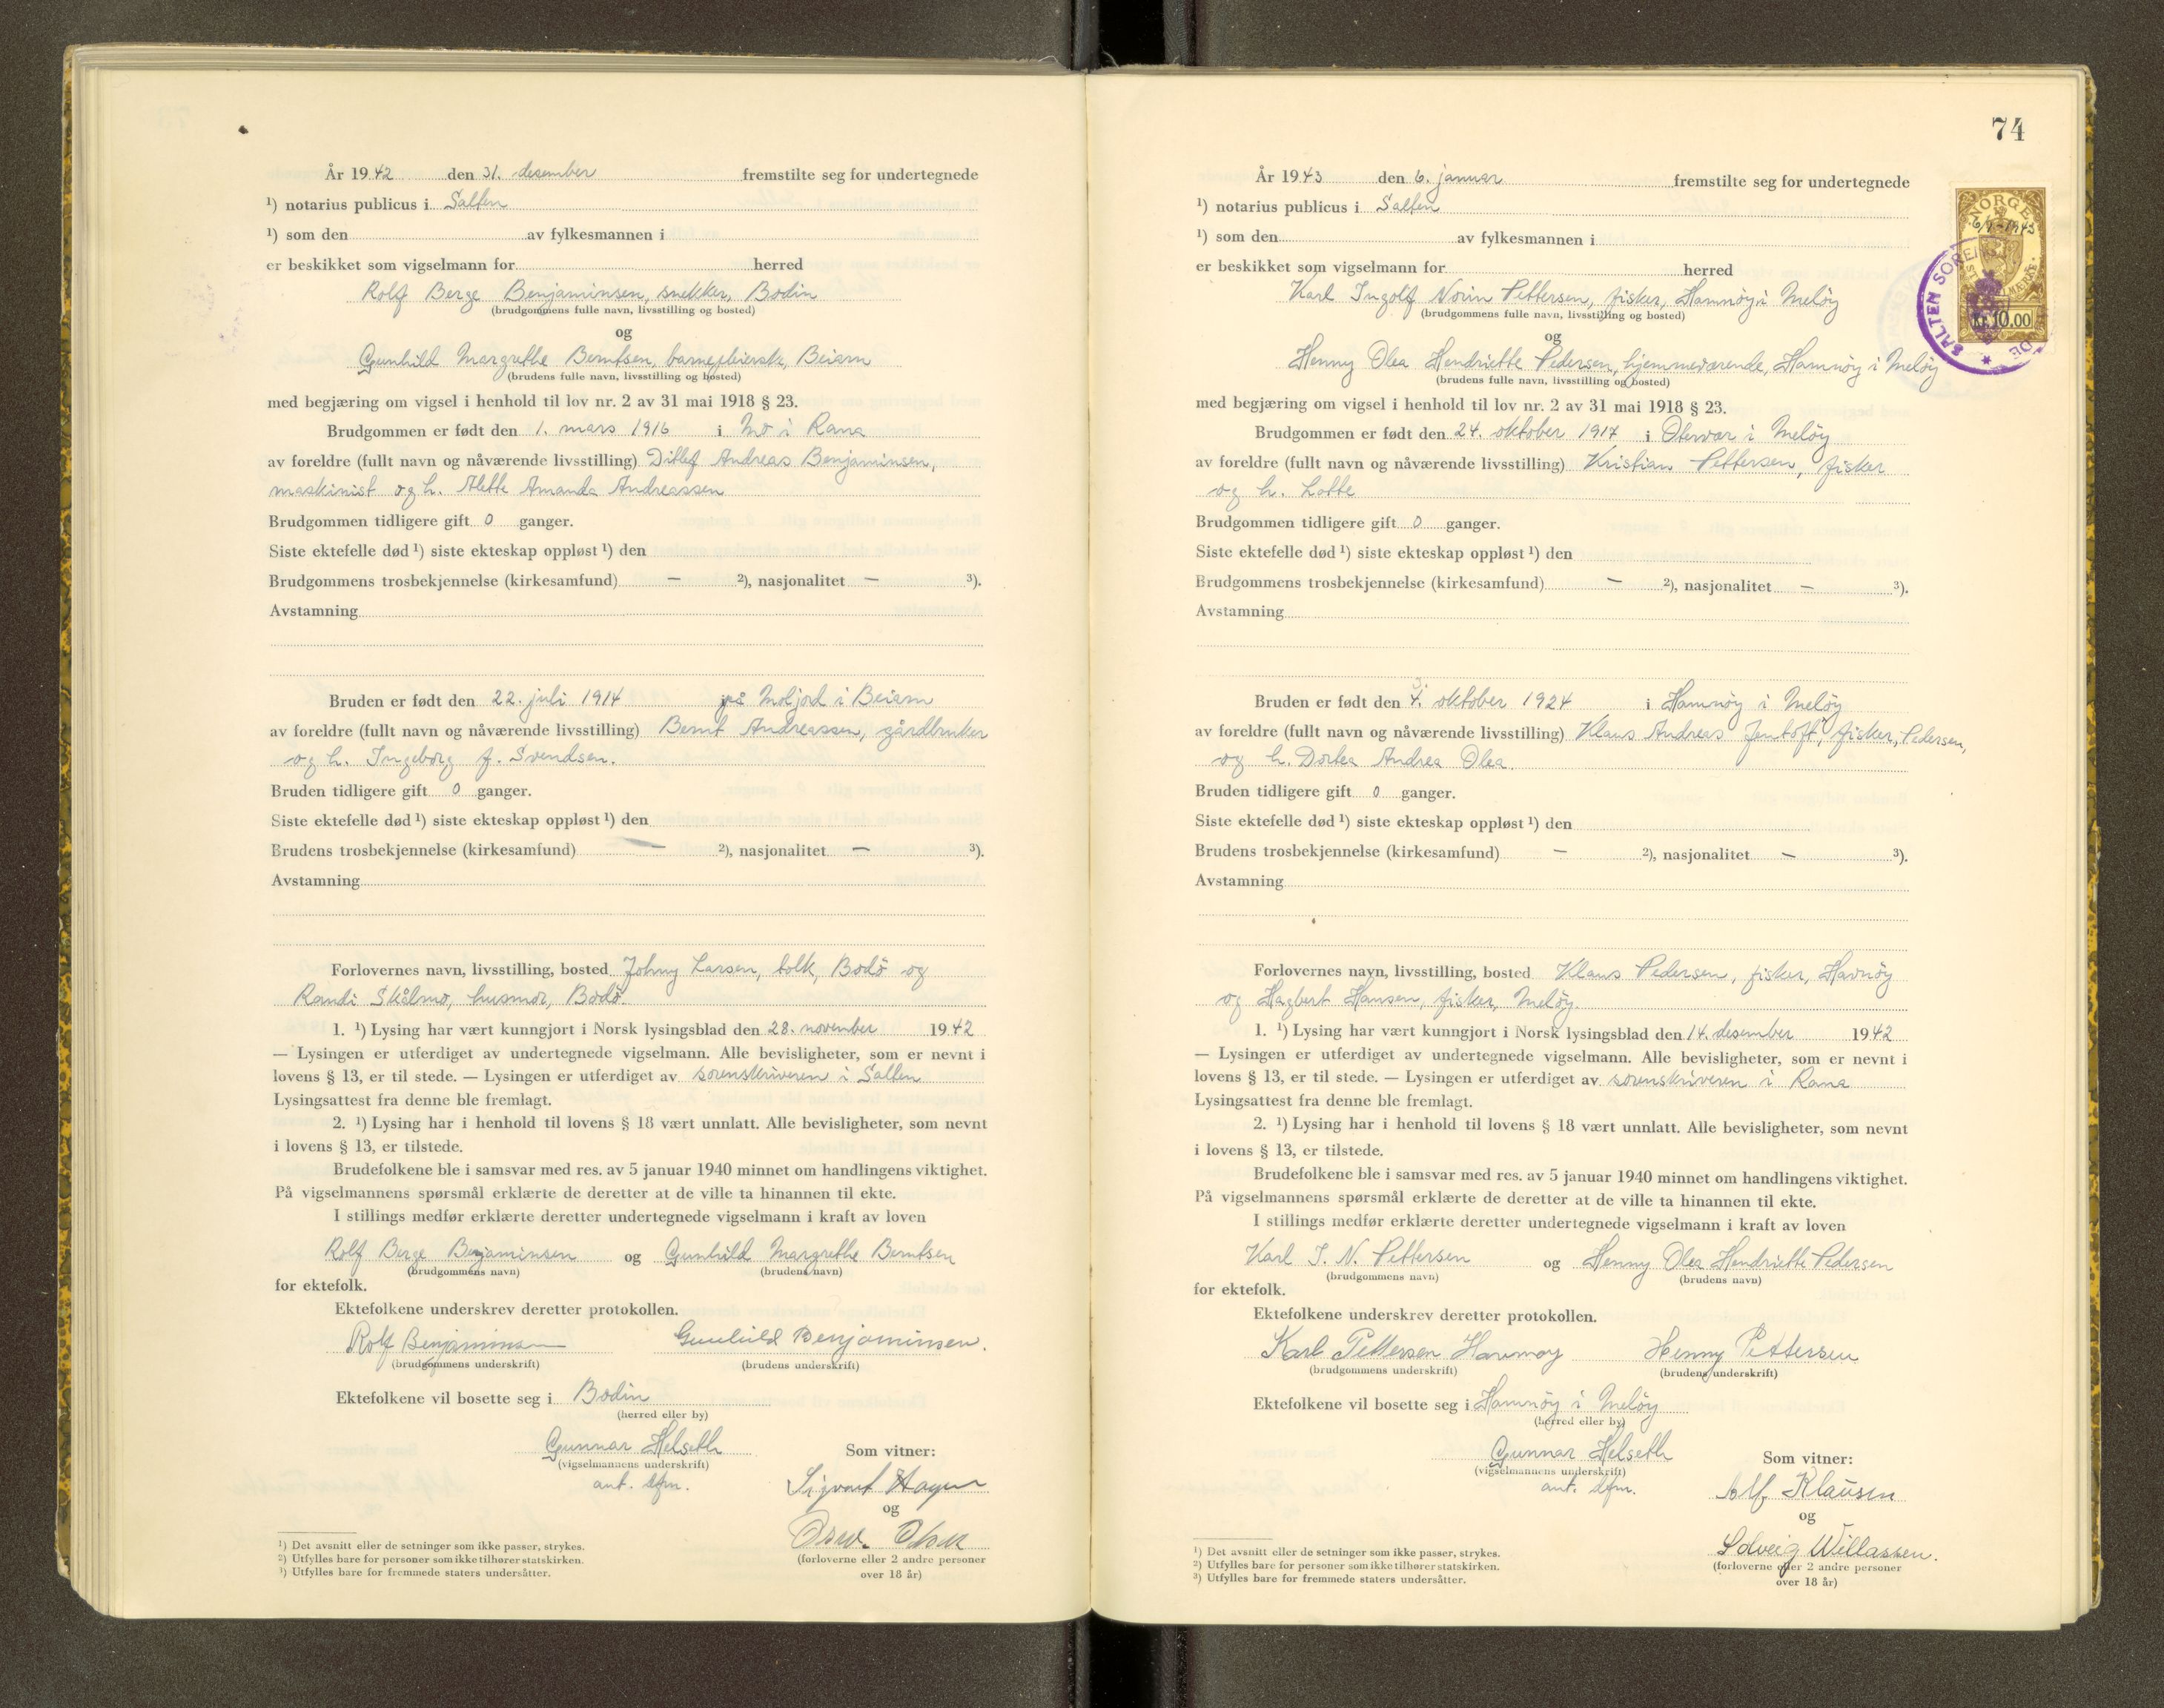 År 1942 den 31. desember fremstilte seg for undertegnede
¹) notarius publicus i Salten
¹) som den av fylkesmannen i
er beskikket som vigselmann for herred
Rolf Berge Benjaminsen, snekker, Bodin
(brudgommens fulle navn, livsstilling og bosted)
og
Gunhild Margrethe Berntsen, barnepleierske, Beiarn
(brudens fulle navn, livsstilling og bosted)
med begjæring om vigsel i henhold til lov nr. 2 av 31 mai 1918 § 23.
Brudgommen er født den 1. mars 1916 i Mo i Rana
av foreldre (fullt navn og nåværende livsstilling) Ditlef Andreas Benjaminsen,
maskinist og h. Alette Amanda Andreassen
Brudgommen tidligere gift 0 ganger.
Siste ektefelle død ¹) siste ekteskap oppløst ¹) den
Brudgommens trosbekjennelse (kirkesamfund) — ²), nasjonalitet — ³).
Avstamning
Bruden er født den 22. juli 1914 på Moljord i Beiarn
av foreldre (fullt navn og nåværende livsstilling) Bernt Andreassen, gårdbruker
og h. Ingeborg f. Svendsen.
Bruden tidligere gift 0 ganger.
Siste ektefelle død ¹) siste ekteskap oppløst ¹) den
Brudens trosbekjennelse (kirkesamfund) — ²), nasjonalitet — ³).
Avstamning
Forlovernes navn, livsstilling, bosted Johny Larsen, tolk, Bodö og
Randi Skålmo, husmor, Bodö.
1. ¹) Lysing har vært kunngjort i Norsk lysingsblad den 28. november 1942
— Lysingen er utferdiget av undertegnede vigselmann. Alle bevisligheter, som er nevnt i
lovens § 13, er til stede. — Lysingen er utferdiget av sorenskriveren i Salten
Lysingsattest fra denne ble fremlagt.
2. ¹) Lysing har i henhold til lovens § 18 vært unnlatt. Alle bevisligheter, som nevnt
i lovens § 13, er tilstede.
Brudefolkene ble i samsvar med res. av 5 januar 1940 minnet om handlingens viktighet.
På vigselmannens spørsmål erklærte de deretter at de ville ta hinannen til ekte.
I stillings medfør erklærte deretter undertegnede vigselmann i kraft av loven
Rolf Berge Benjaminsen og Gunhild Margrethe Berntsen
(brudgommens navn) (brudens navn)
for ektefolk.
Ektefolkene underskrev deretter protokollen.
Rolf Benjaminsen Gunhild Benjaminsen.
(brudgommens underskrift) (brudens underskrift)
Ektefolkene vil bosette seg i Bodin
(herred eller by)
Gunnar Helseth Som vitner:
(vigselmannens underskrift)
aut. dfm.
Sigvart
og
(forloverne eller 2 andre personer
over 18 år)
¹) Det avsnitt eller de setninger som ikke passer, strykes.
²) Utfylles bare for personer som ikke tilhører statskirken.
³) Utfylles bare for fremmede staters undersåtter.
74
NORGE
6/1-1943
STEMPELMERKE
Kr. 10.00
SALTEN SOREN
År 1943 den 6. januar fremstilte seg for undertegnede
¹) notarius publicus i Salten
¹) som den av fylkesmannen i
er beskikket som vigselmann for herred
Karl Ingolf Norin Pettersen, fisker, Hamnöy i Melöy
(brudgommens fulle navn, livsstilling og bosted)
og
Henny Olea Hendriette Pedersen, hjemmeværende, Hamnöy i Melöy
(brudens fulle navn, livsstilling og bosted)
med begjæring om vigsel i henhold til lov nr. 2 av 31 mai 1918 § 23.
Brudgommen er født den 24. oktober 1917 i Otervær i Melöy
av foreldre (fullt navn og nåværende livsstilling) Kristian Pettersen, fisker
og h. Lotte
Brudgommen tidligere gift 0 ganger.
Siste ektefelle død ¹) siste ekteskap oppløst ¹) den
Brudgommens trosbekjennelse (kirkesamfund) — ²), nasjonalitet — ³).
Avstamning
Bruden er født den 4. oktober 1924 i Hamnöy i Melöy
av foreldre (fullt navn og nåværende livsstilling) Klaus Andreas Jentoft, fisker, Pedersen,
og h. Dortea Andrea Olea.
Bruden tidligere gift 0 ganger.
Siste ektefelle død ¹) siste ekteskap oppløst ¹) den
Brudens trosbekjennelse (kirkesamfund) — ²), nasjonalitet — ³).
Avstamning
Forlovernes navn, livsstilling, bosted Klaus Pedersen, fisker, Havnöy
og Hagbert Hansen, fisker, Melöy
1. ¹) Lysing har vært kunngjort i Norsk lysingsblad den 14. desember 1942
— Lysingen er utferdiget av undertegnede vigselmann. Alle bevisligheter, som er nevnt i
lovens § 13, er til stede. — Lysingen er utferdiget av sorenskriveren i Rana
Lysingsattest fra denne ble fremlagt.
2. ¹) Lysing har i henhold til lovens § 18 vært unnlatt. Alle bevisligheter, som nevnt
i lovens § 13, er tilstede.
Brudefolkene ble i samsvar med res. av 5 januar 1940 minnet om handlingens viktighet.
På vigselmannens spørsmål erklærte de deretter at de ville ta hinannen til ekte.
I stillings medfør erklærte deretter undertegnede vigselmann i kraft av loven
Karl I. N. Pettersen og Henny Olea Hendriette Pedersen
(brudgommens navn) (brudens navn)
for ektefolk.
Ektefolkene underskrev deretter protokollen.
Karl Pettersen Havnøy Henny Pettersen
(brudgommens underskrift) (brudens underskrift)
Ektefolkene vil bosette seg i Hamnöy i Melöy
(herred eller by)
Gunnar Helseth Som vitner:
(vigselmannens underskrift)
aut. dfm.
Alf Klausen
og
Solveig Willassen.
(forloverne eller 2 andre personer
over 18 år)
¹) Det avsnitt eller de setninger som ikke passer, strykes.
²) Utfylles bare for personer som ikke tilhører statskirken.
³) Utfylles bare for fremmede staters undersåtter.